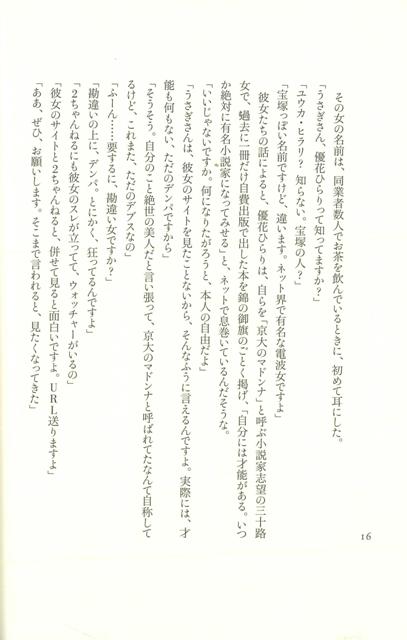 その女の名前は、同業者数人でお茶を飲んでいるときに、初めて耳にした。
「うさぎさん、優花ひらりって知ってますか？」
「ユウカ・ヒラリ？　知らない。宝塚の人？」
「宝塚っぽい名前ですけど、違います。ネット界で有名な電波女ですよ」
彼女たちの話によると、優花ひらりは、自らを「京大のマドンナ」と呼ぶ小説家志望の三十路
女で、過去に一冊だけ自費出版で出した本を錦の御旗のごとく掲げ、「自分には才能がある。いつ
か絶対に有名小説家になってみせる」と、ネットで息巻いているんだそうな。
「いいじゃないですか。何になりたがろうと、本人の自由だよ」
「うさぎさんは、彼女のサイトを見たことないから、そんなふうに言えるんですよ。実際には、才
能も何もない、ただのデンパですから」
「そうそう。自分のこと絶世の美人だと言い張って、京大のマドンナと呼ばれてたなんて自称して
るけど、これまた、ただのデブスなの」
「ふーん……要するに、勘違い女ですか？」
「勘違いの上に、デンパ。とにかく、狂ってるんですよ」
「２ちゃんねるにも彼女のスレが立ってて、ウォッチャーがいるの」
「彼女のサイトと２ちゃんねると、併せて見ると面白いですよ。ＵＲＬ送りますよ」
「ああ、ぜひ、お願いします。そこまで言われると、見たくなってきた」
16